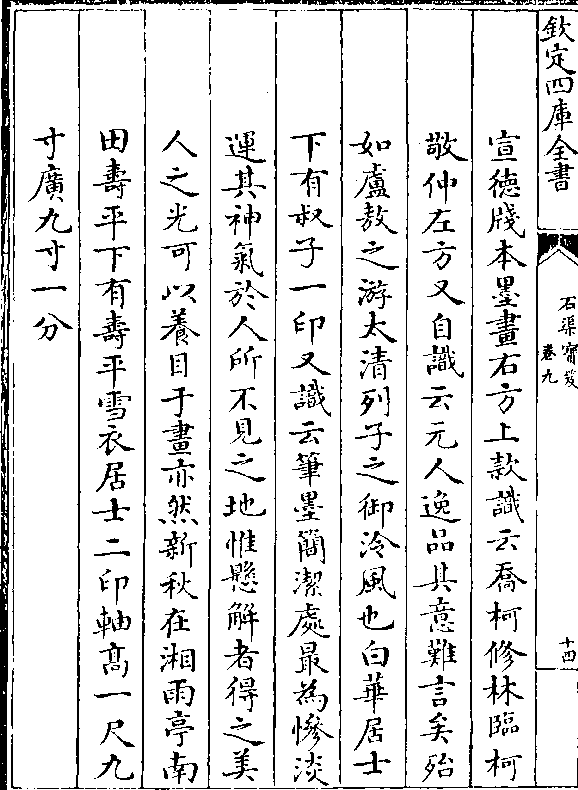 欽定四庫全書
石渠寳笈
卷九
十四
宣德牋本墨畫右方上款識云喬柯修林臨柯
敬仲左方又自識云元人逸品其意難言矣殆
如盧敖之游太清列子之御泠風也白華居士
下有叔子一印又識云筆墨簡潔處最為慘淡
運其神氣於人所不見之地惟懸解者得之美
人之光可以養目于畫亦然新秋在湘雨亭南
田壽平下有壽平雪衣居士二印軸髙一尺九
寸廣九寸一分